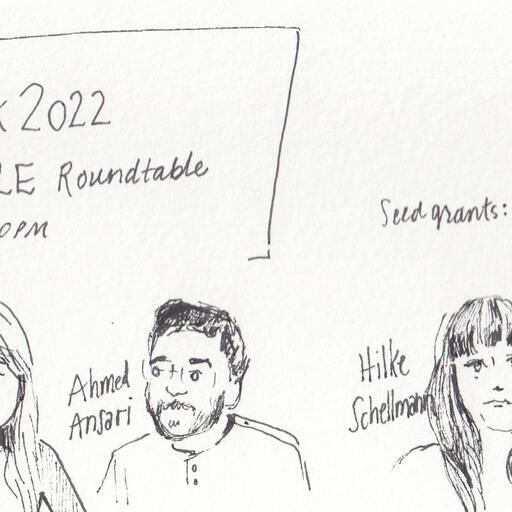 2022
Roundtable
PM
Seed grants:
Ahmed
Ansari
Hilke
Schellmann